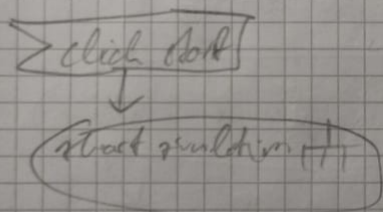 click start
start simulation